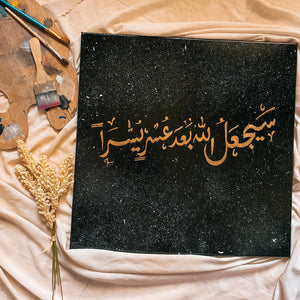 سَيَجْعَلُ اللهُ بَعْدَ عُسْرٍ يُسْرًا